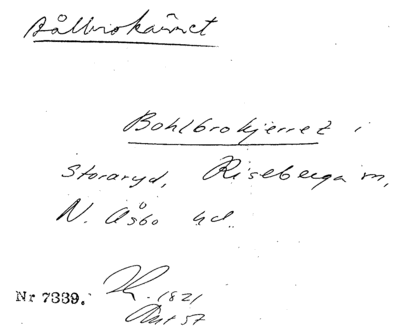 Bålbrokärret
Bohlbrokjerret i
Storaryd, Riseberga sn,
N. Åsbo hd.
Nr 7339.
1821